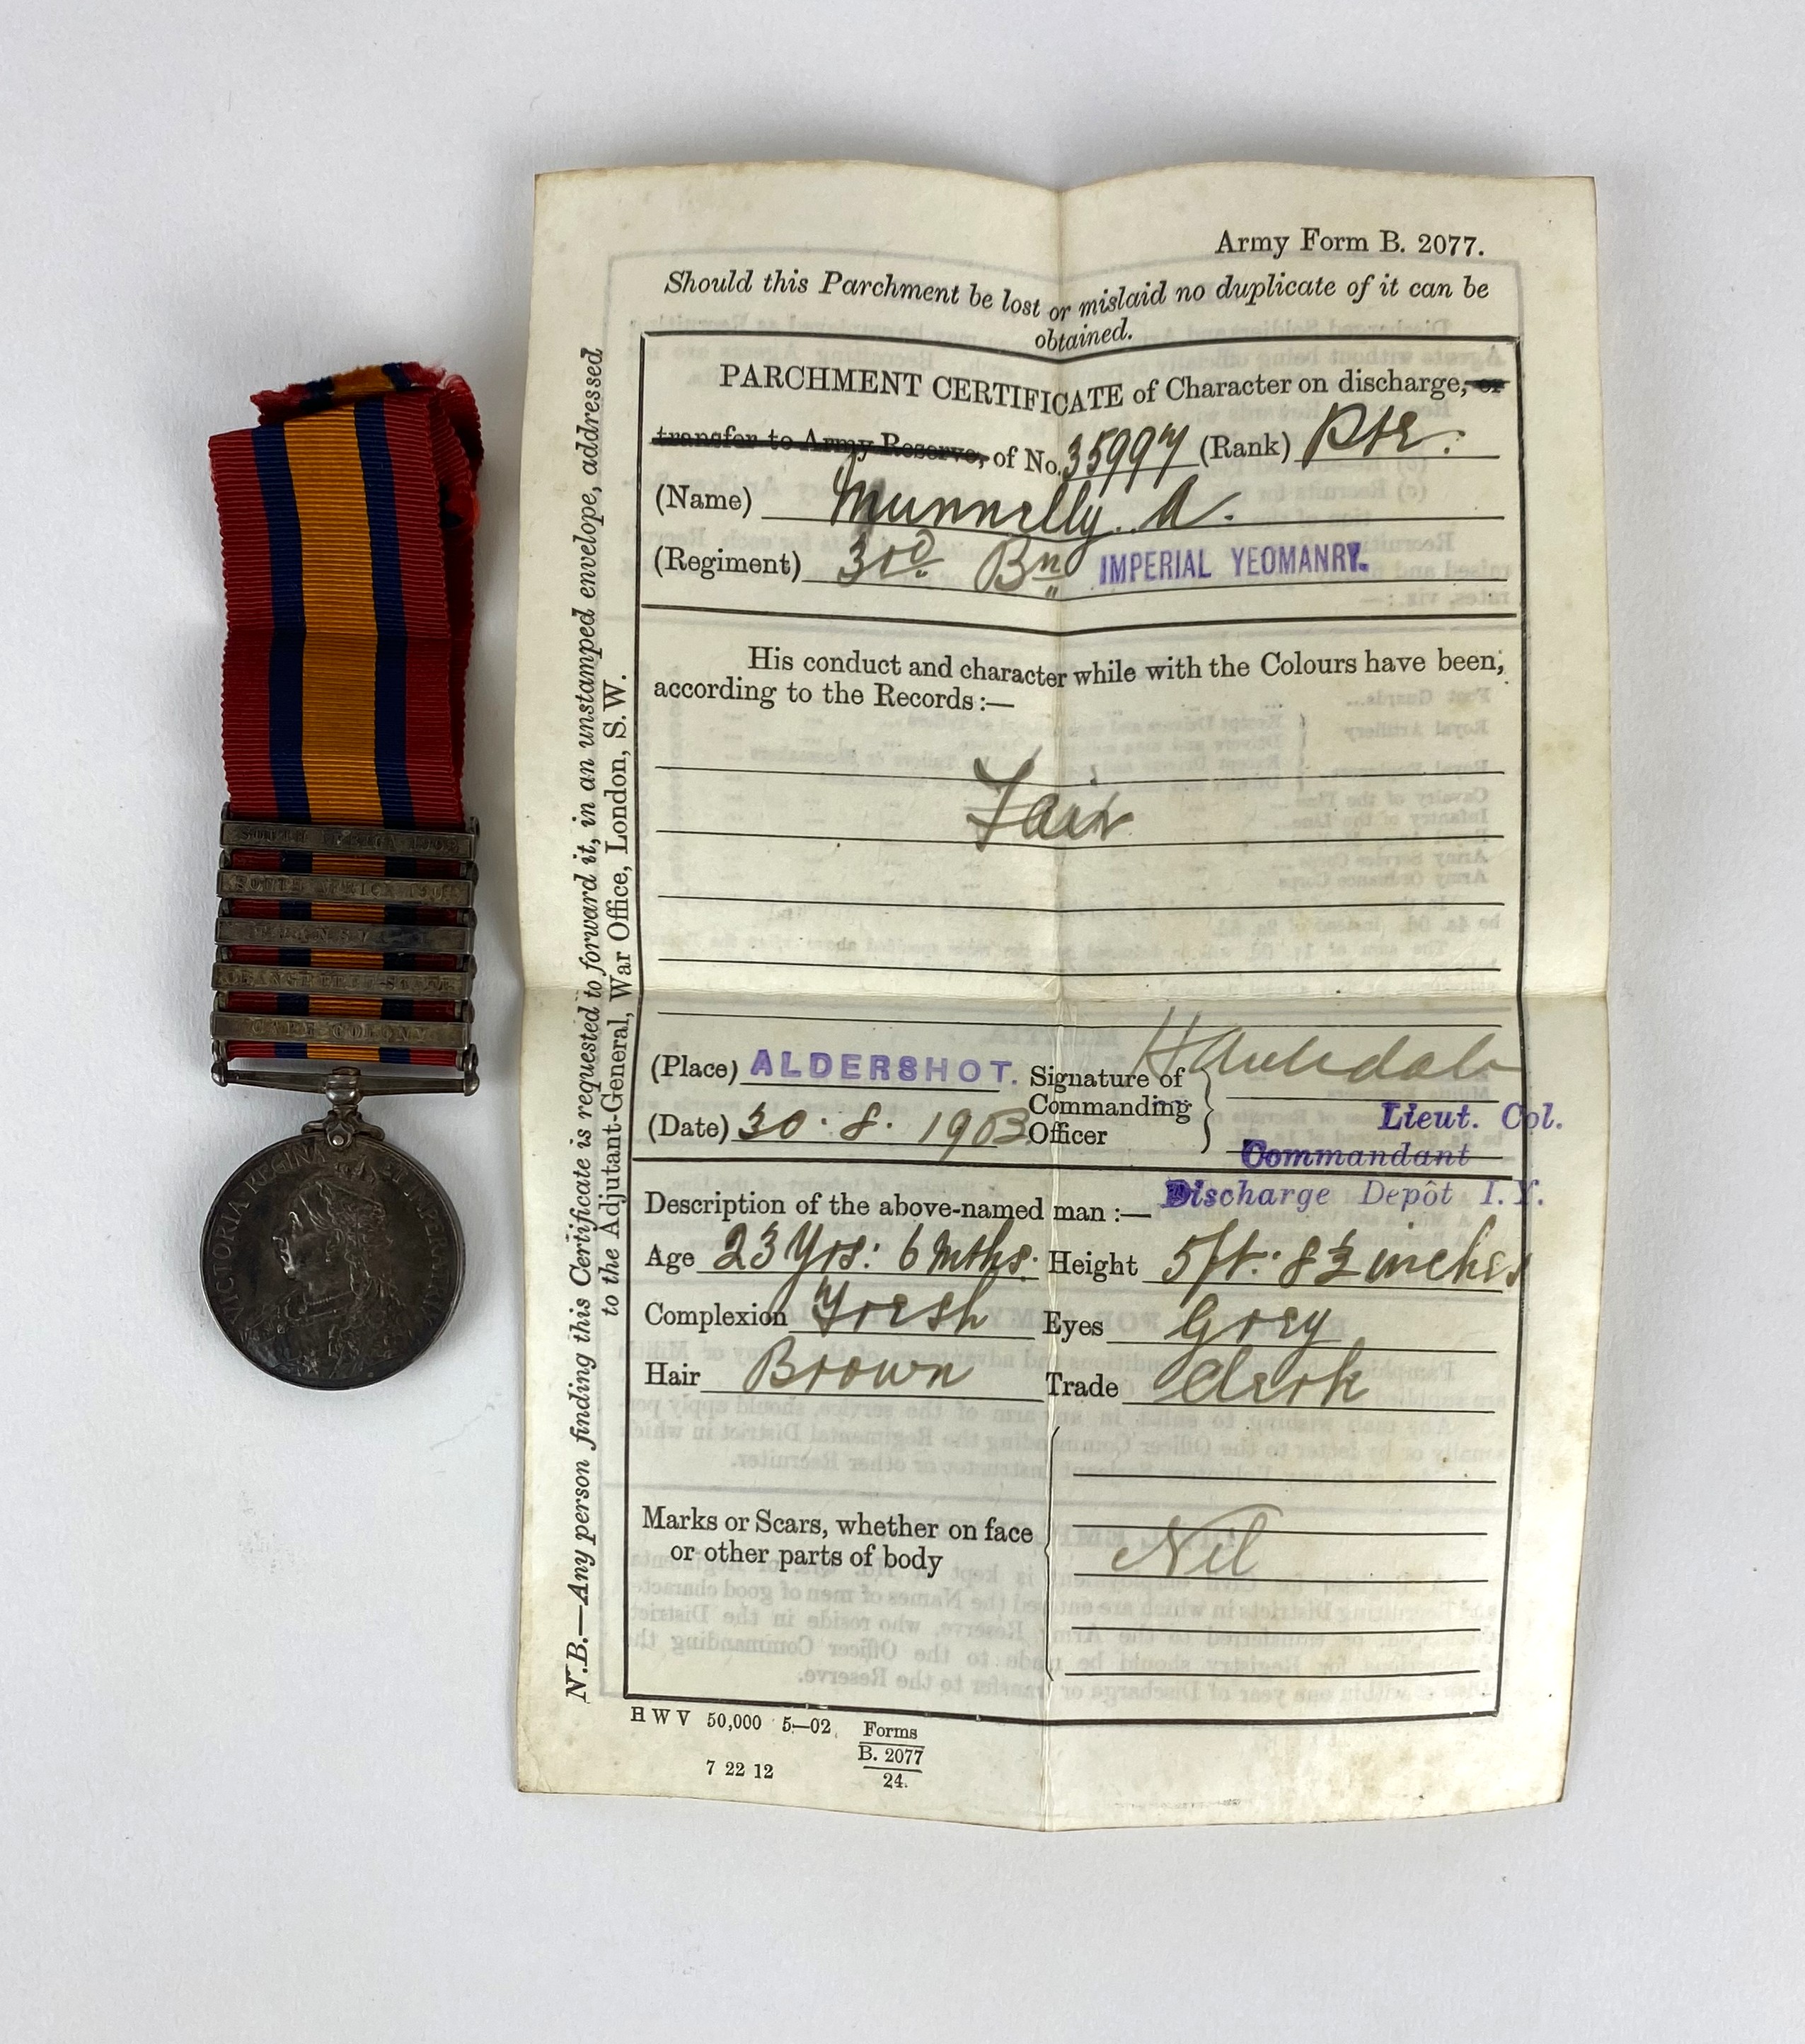 SOUTH AFRICA 1902
SOUTH AFRICA 1901
TRANSVAAL
ORANGE FREE STATE
CAPE COLONY
VICTORIA REGINA ET IMPERATRIX
Army Form B. 2077.
Should this Parchment be lost or mislaid no duplicate of it can be
obtained.
PARCHMENT CERTIFICATE of Character on discharge, or
transfer to Army Reserve, of No. 35997 (Rank) Pte.
(Name) Munnelly. A.
(Regiment) 3rd Bn IMPERIAL YEOMANRY.
His conduct and character while with the Colours have been,
according to the Records:—
Fair
(Place) ALDERSHOT. Signature of
Commanding
(Date) 30.8.1903 Officer
Lieut. Col.
Commandant
Discharge Depôt I.Y.
Description of the above-named man :—
Age 23 Yrs: 6 Mths. Height 5ft: 8½ inches
Complexion Fresh Eyes Grey
Hair Brown Trade Clerk
Marks or Scars, whether on face
or other parts of body
Nil
H W V 50,000 5—02. Forms
B. 2077
7 22 12
24.
N.B.—Any person finding this Certificate is requested to forward it, in an unstamped envelope, addressed
to the Adjutant-General, War Office, London, S.W.